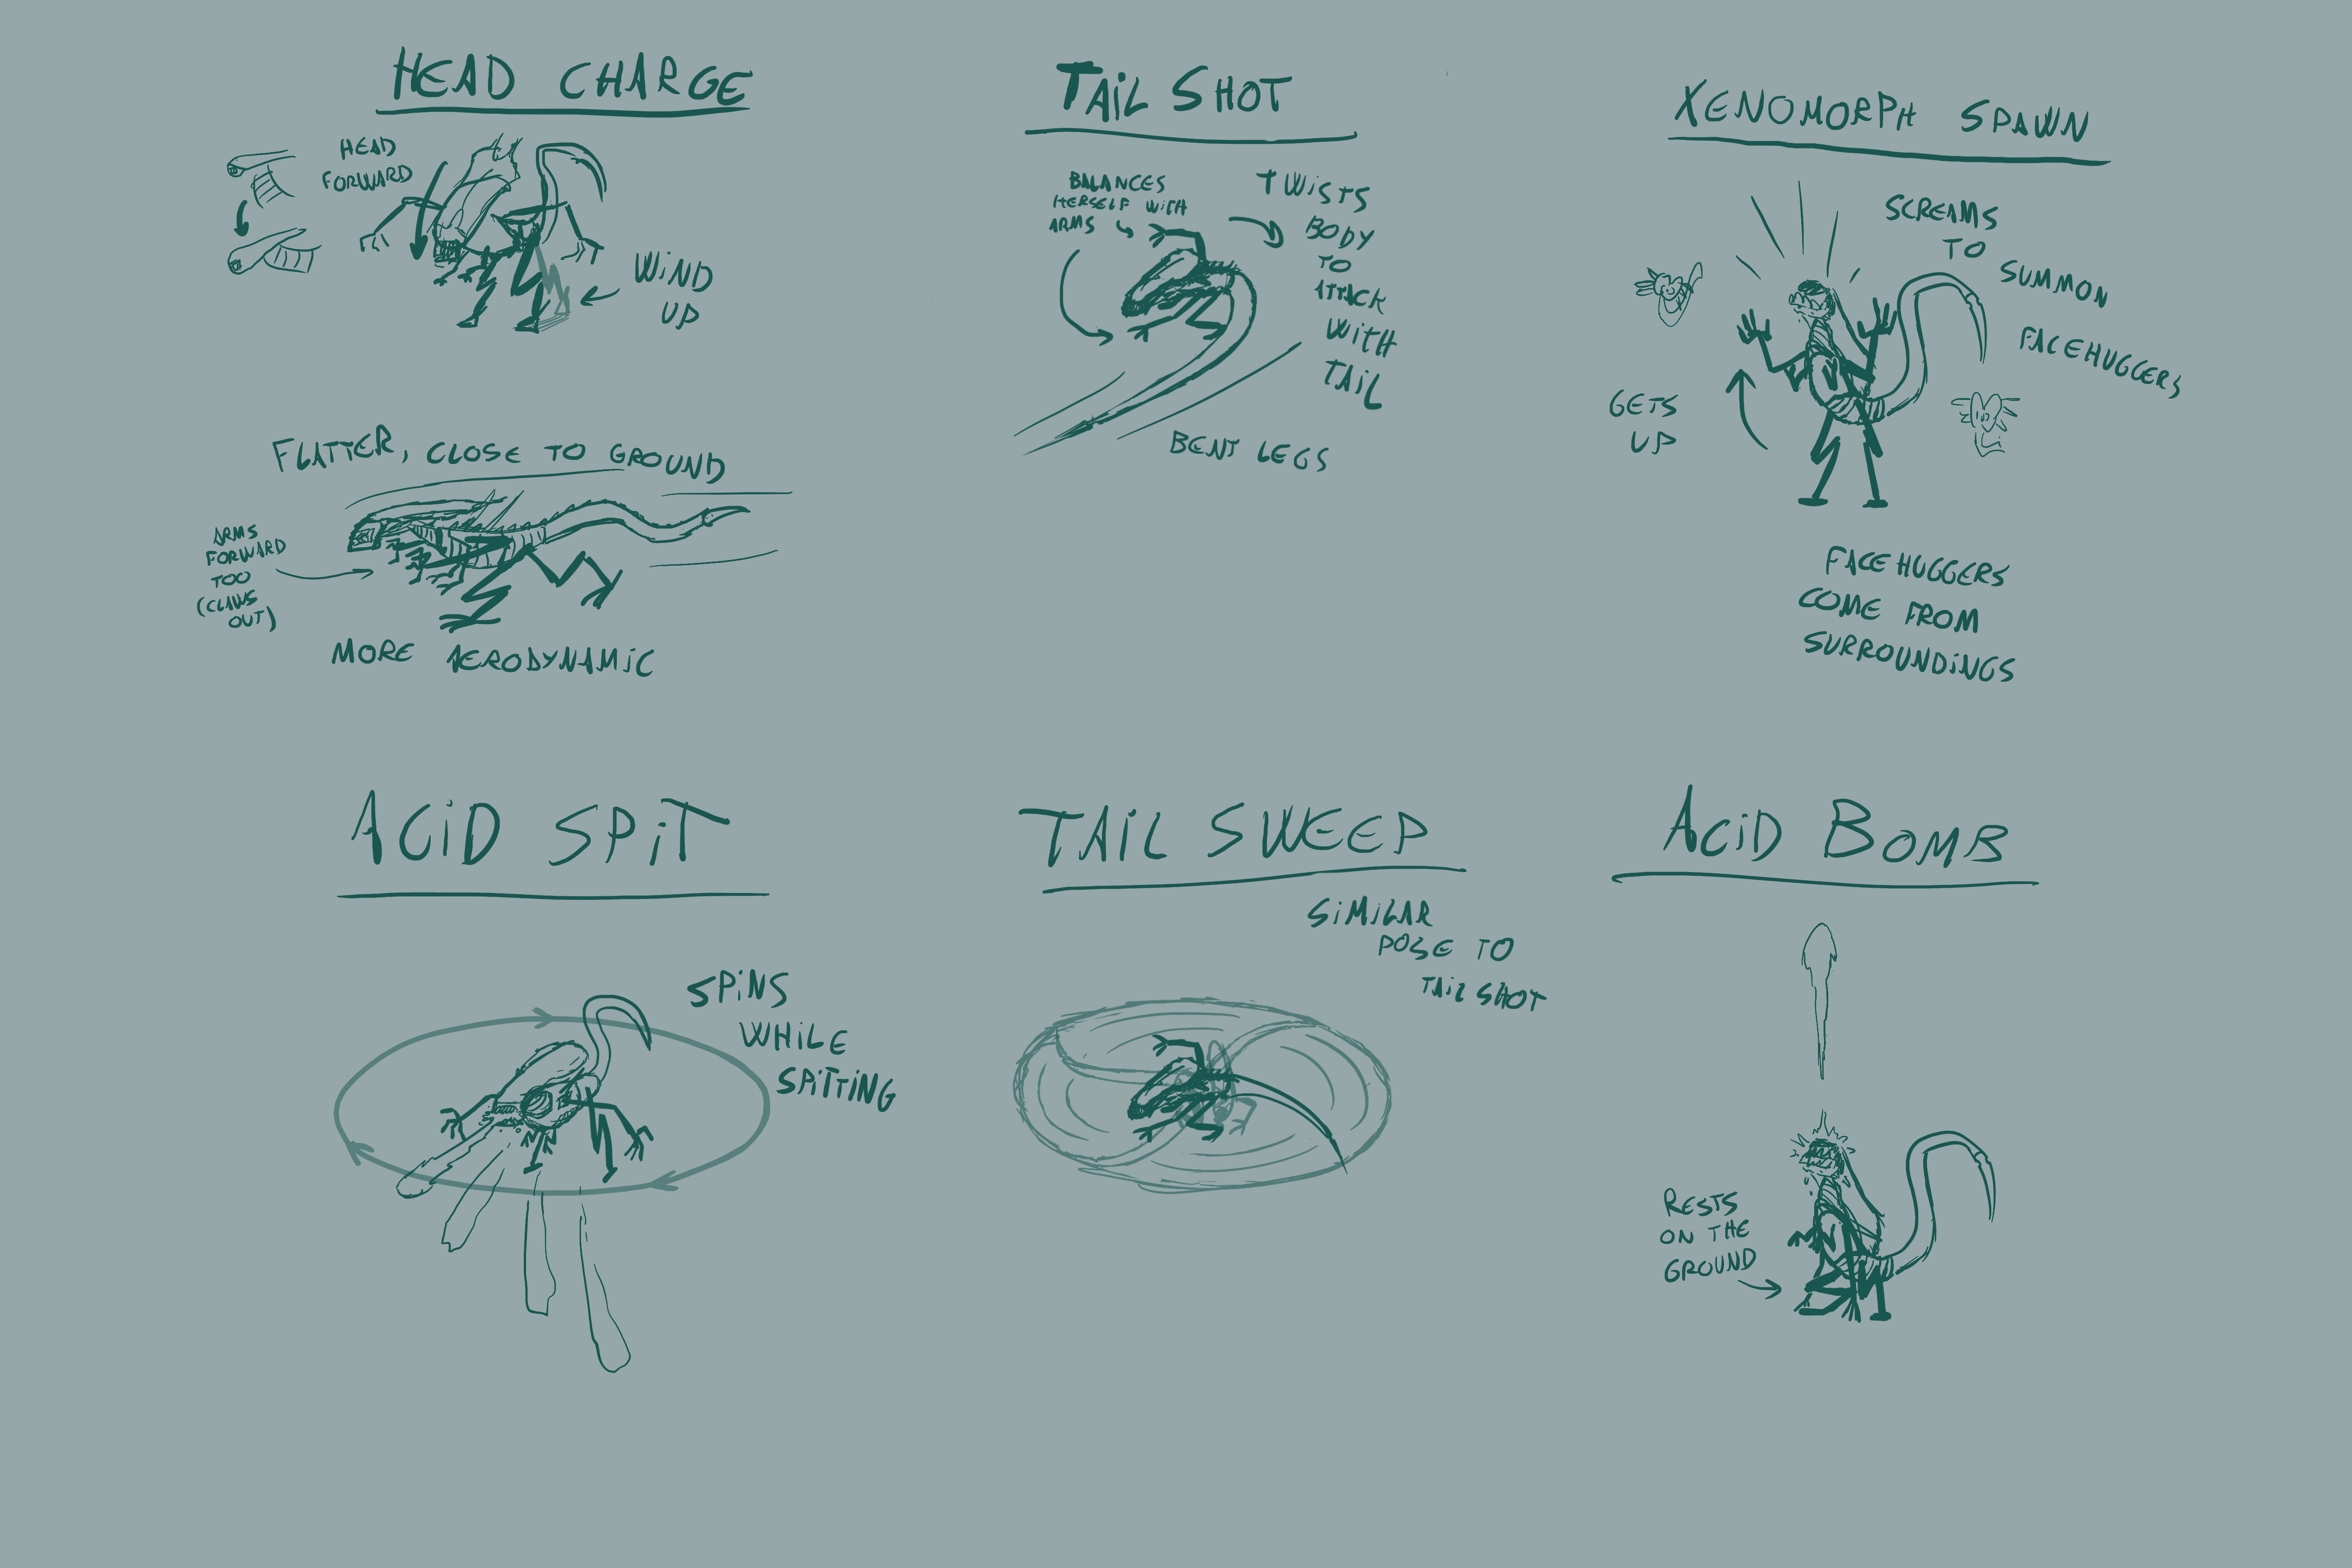 HEAD CHARGE
HEAD
FORWARD
WIND
UP
FLATTER, CLOSE TO GROUND
ARMS
FORWARD
TOO
(CLAWS
OUT)
MORE AERODYNAMIC
TAIL SHOT
BALANCES
HERSELF WITH
ARMS
TWISTS
BODY
TO
ATTACK
WITH
TAIL
BENT LEGS
XENOMORPH SPAWN
SCREAMS
TO
SUMMON
FACEHUGGERS
GETS
UP
FACEHUGGERS
COME FROM
SURROUNDINGS
ACID SPIT
SPINS
WHILE
SPITTING
TAIL SWEEP
SIMILAR
POSE TO
TAIL SHOT
ACID BOMB
RESTS
ON THE
GROUND